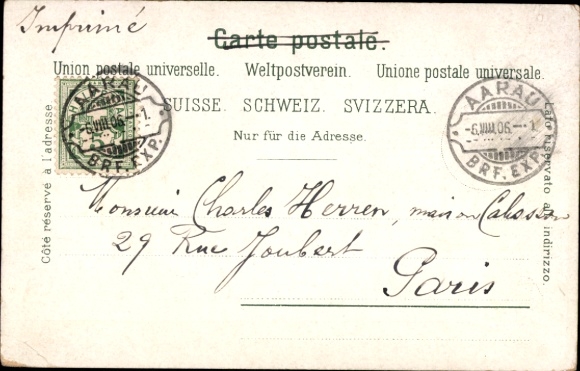 Imprimé
Carte postale.
Union postale universelle. Weltpostverein. Unione postale universale.
SUISSE. SCHWEIZ. SVIZZERA.
Nur für die Adresse.
Côté réservé à l'adresse.
Lato riservato all'indirizzo.
AARAU
-6.VIII.06.--1.
BRF. EXP.
AARAU
-6.VIII.06.--1.
BRF. EXP.
Monsieur Charles Herren, maison
29 Rue Joubert
Paris